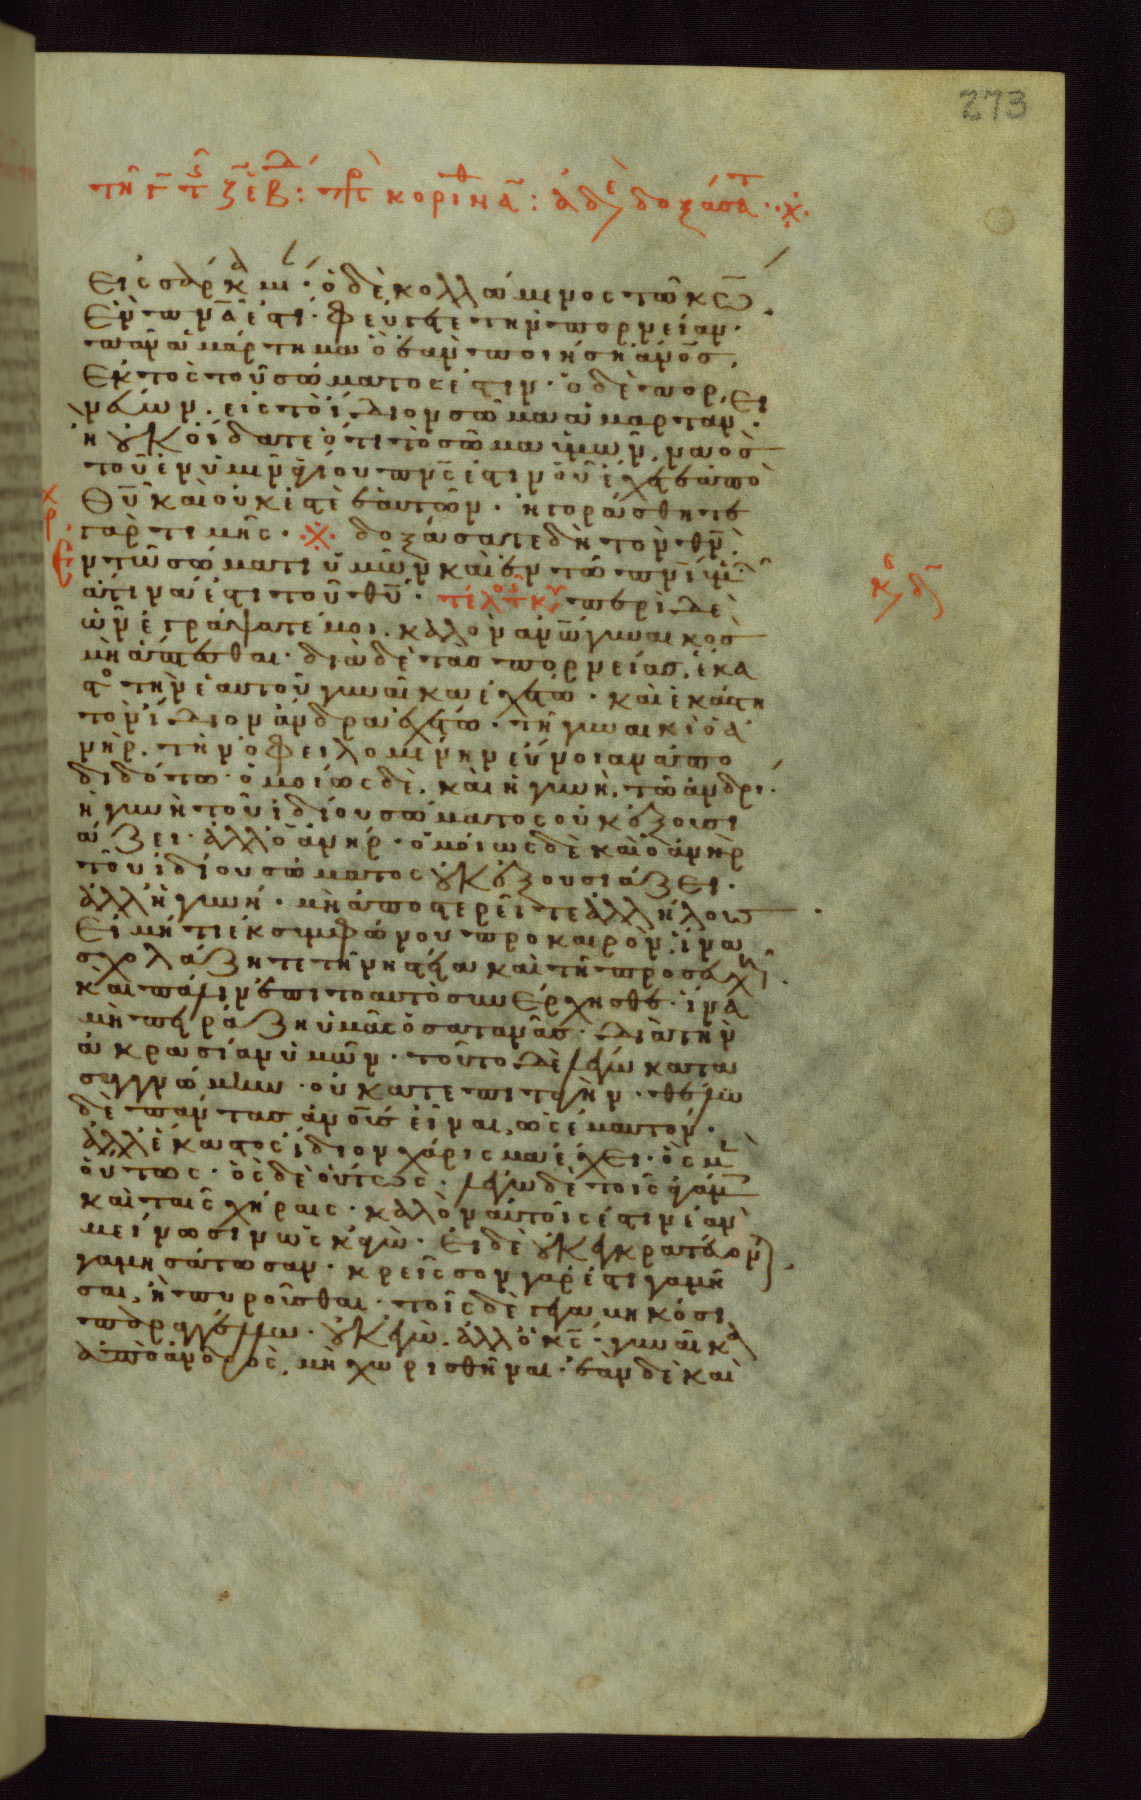 273
τῆ γ τ ς ζ ἑβδ: πρ κορινθ α: ἀδε δοξάσατ
εἰς σάρκα μί. ὁ δὲ κολλώμενος τῶ κω
ἐν πνα ἐστι. φεύγετε τὴν πορνείαν.
πᾶν ἁμάρτημα ὃ ἐὰν ποιήση ἀνος,
ἐκτὸς τοῦ σώματος ἐστιν. ὁ δὲ πορ
νεύων. εἰς τὸ ἴδιον σῶμα ἁμαρτάν.
ἢ οὐκ οἴδατε ὅτι τὸ σῶμα ὑμῶν, ναὸς
τοῦ ἐν ὑμῖν ἁγίου πνς ἐστιν οὗ ἔχετε ἀπὸ
θυ καὶ οὐκ ἐστὲ ἑαυτῶν. ἠγοράσθητε
γὰρ τιμῆς. δοξάσατε δὴ τὸν θν.
ἐν τῶ σώματι ὑμῶν καὶ ἐν τῶ πνι ὑμ
ἅτινά ἐστι τοῦ θυ. τέλος τ κυ περὶ δὲ
ὧν ἐγράψατέ μοι. καλὸν ἀνω γυναικὸς
μὴ ἅπτεσθαι. διὰ δὲ τὰς πορνείας, ἕκα
στο τὴν ἑαυτοῦ γυναῖκα ἐχέτω. καὶ ἑκάστη
τὸν ἴδιον ἄνδρα ἐχέτω. τῆ γυναικὶ ὁ ἀ
νὴρ. τὴν ὀφειλομένην εὔνοιαν ἀπο
διδότω. ὁμοίως δὲ, καὶ ἡ γυνὴ, τῶ ἀνδρι.
ἡ γυνὴ τοῦ ἰδίου σώματος οὐκ ἐξουσι
άζει. ἀλλ ὁ ἀνήρ. ὁμοίως δὲ καὶ ὁ ἀνὴρ
τοῦ ἰδίου σώματος οὐκ ἐξουσιάζει.
ἀλλ ἡ γυνή. μὴ ἀποστερεῖτε ἀλλήλους
εἰ μή τι ἐκ συμφώνου προκαιρὸν, ἵνα
σχολάζητε τῆ νηστεία καὶ τῆ προσευχῆ.
καὶ πάλιν ἐπι τοαυτὸ συνέρχησθε. ἵνα
μὴ πειράζη ὑμᾶς ὁ σατανᾶς. διὰ τὴν
ἀκρασίαν ὑμῶν. τοῦτο δὲ λέγω κατα
συγγνώμην. οὐ κατεπιταγὴν. θέλω
δὲ πάντας ἀνους εἶναι, ὡς ἐμαυτόν.
ἀλλ ἕκαστος ἴδιον χάρισμα ἔχει. ὃς μ
οὕτως. ὃς δὲ οὕτως. λέγω δὲ τοῖς ἀγάμ
καὶ ταῖς χήραις. καλὸν αὐτοῖς ἐστιν ἐὰν
μείνωσιν ὡς κἀγὼ. εἰ δὲ οὐκ ἐγκρατεύον
γαμησάτωσαν. κρεῖσσον γάρ ἐστι γαμῆ
σαι, ἢ πυροῦσθαι. τοῖς δὲ γεγαμηκόσι
παραγγέλλω. οὐκ ἐγὼ. ἀλλ ὁ κς. γυναῖκα
ἀπὸ ἀνδρὸς, μὴ χωρισθῆναι. ἐὰν δὲ καὶ